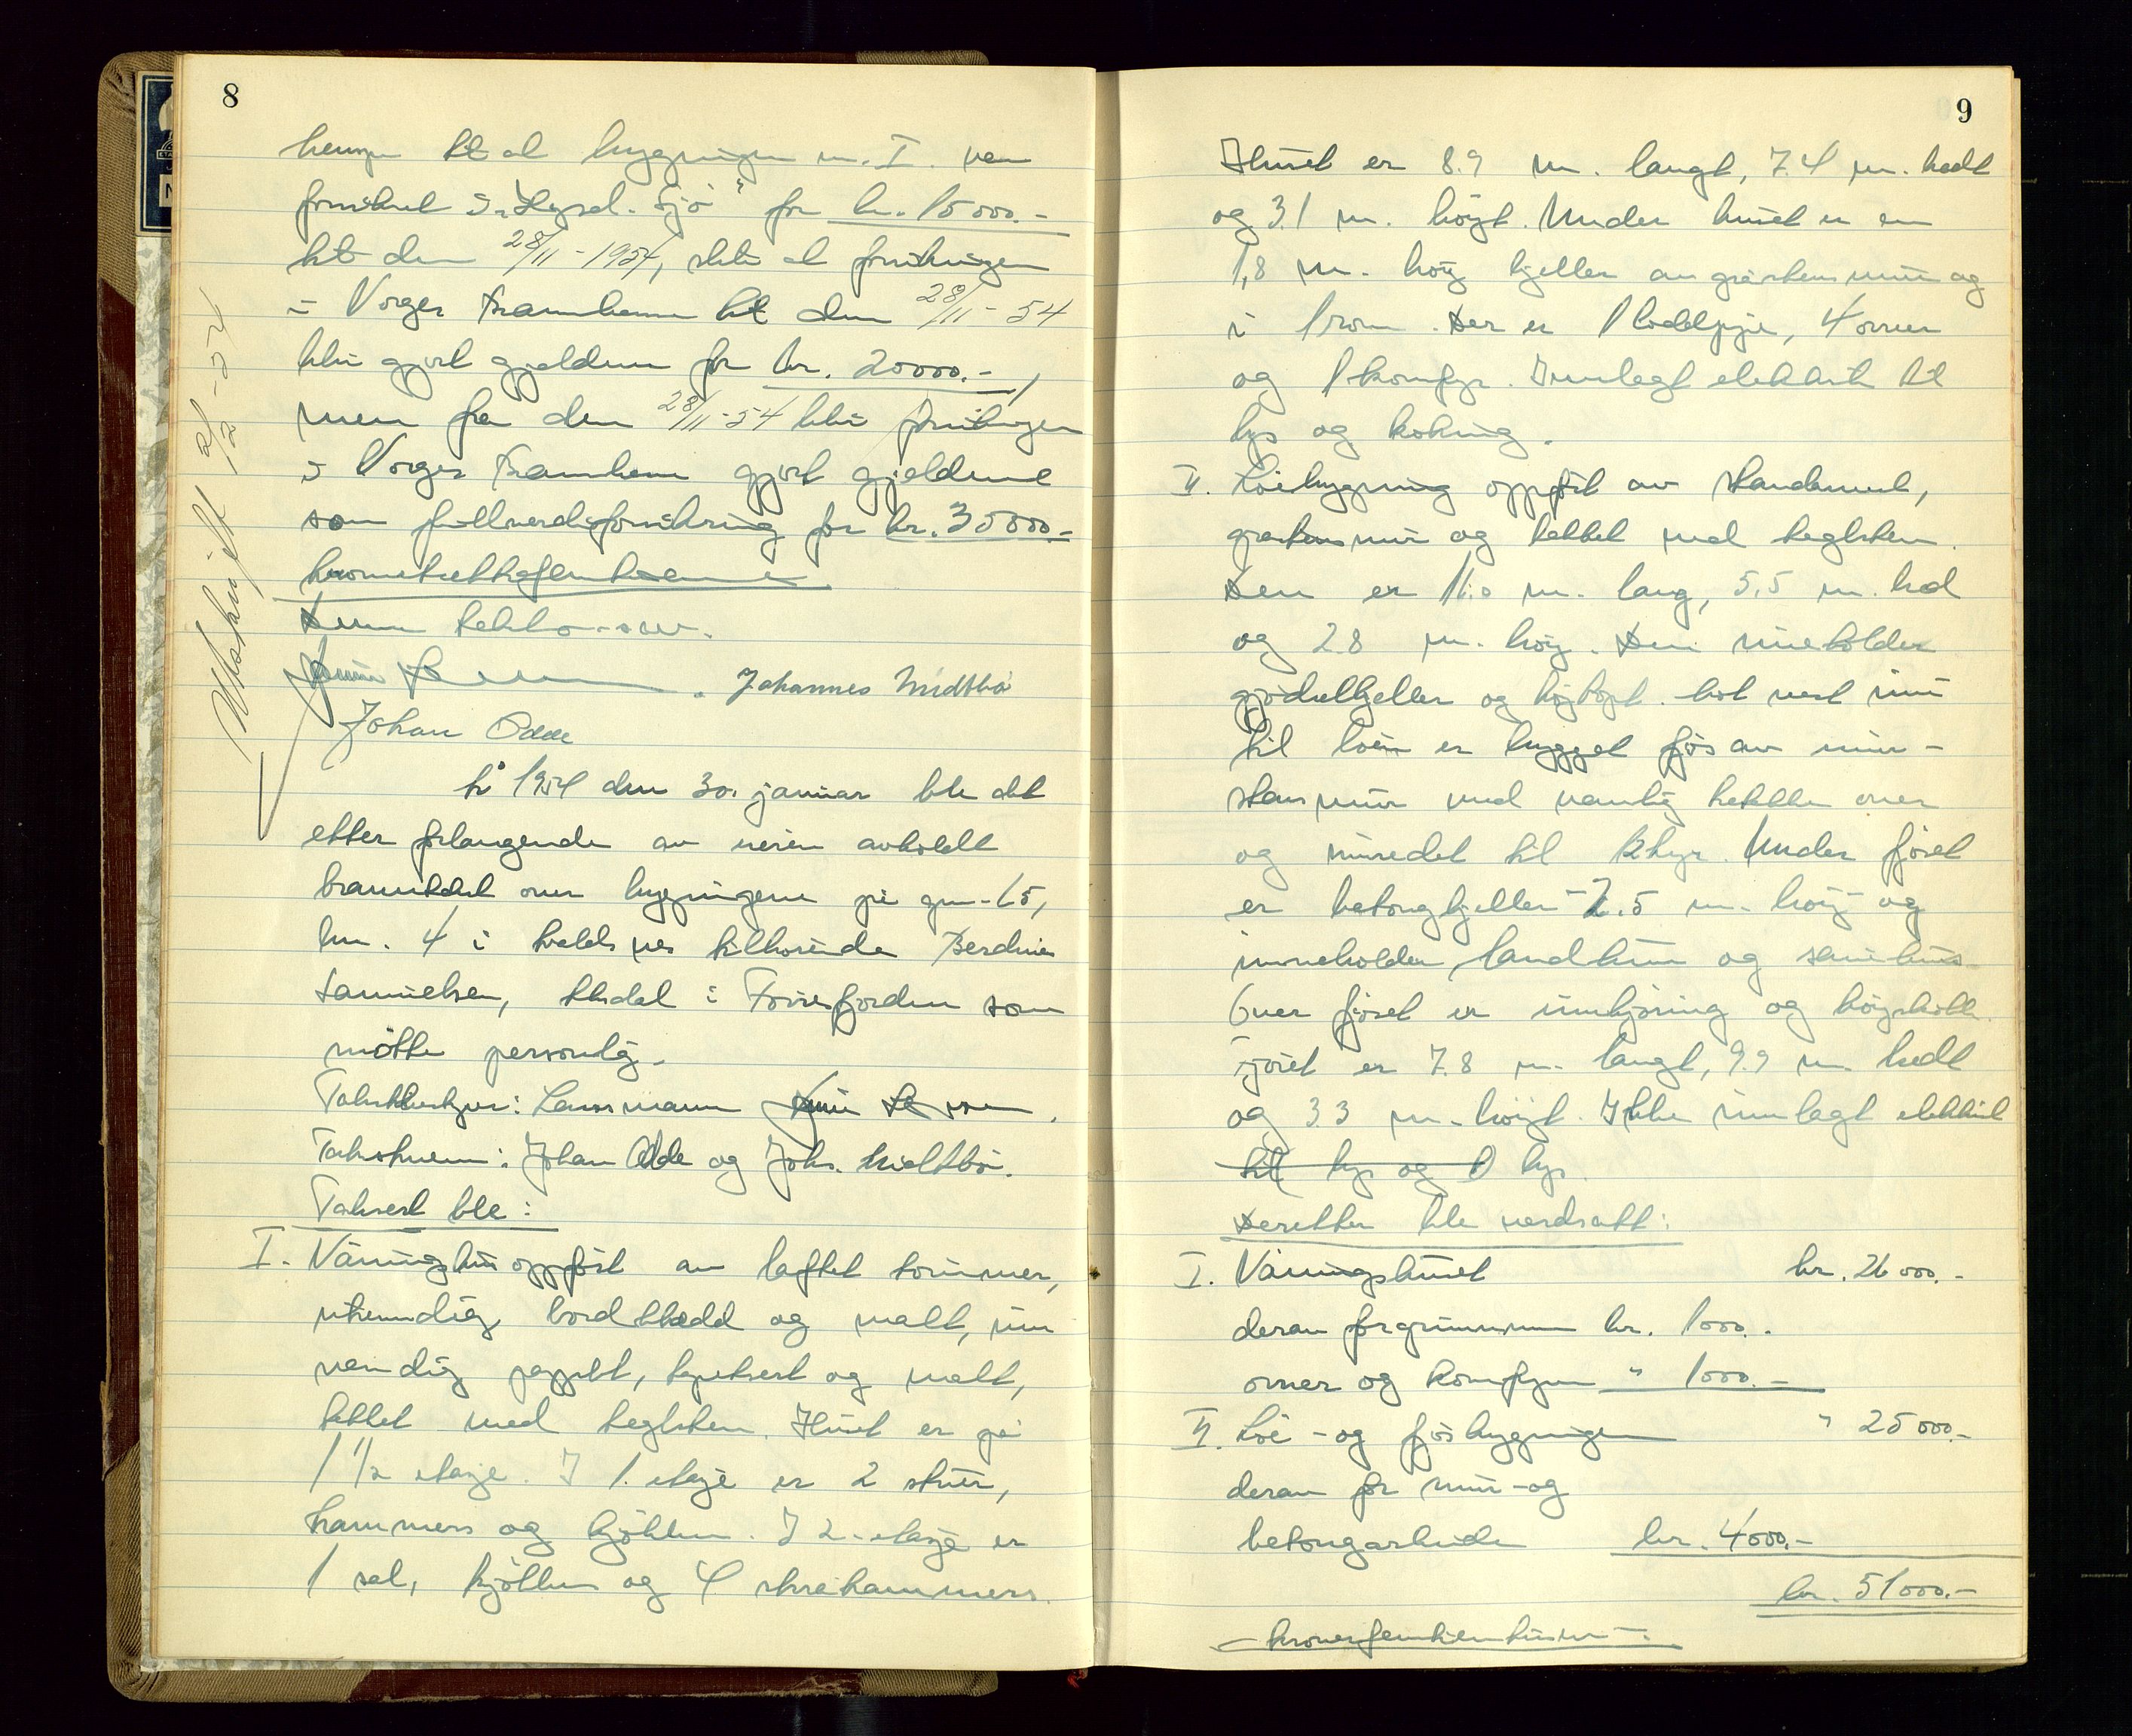 8
hensyn til at bygningen nr. I var
forsikret i "Tysvd. Sjø" for kr. 15000.-
til den 28/11-1954, skli at forsikringen
i Norges Brannkasse til den 28/11-54
bli gjort gjeldene for kr. 20000.-,
men fra den 28/11-54 bli forsikringen
i Norges Brannkasse gjort gjeldende
som fullverdiforsikring for kr. 35000.-
kronertrettifemtusen
Denne takst o.s.v.
Johannes Midtbø
Johan Odde
Utskrift 2/2-54
År 1954 den 30. januar ble det
etter forlangende av eieren avholdt
branntakst over bygningene på gnr. 15,
bnr. 4 i
tilhørende Berdines
Samuelsen, Årdal i Førresfjorden som
møtte personlig.
Takstbestyrer: Lensmann
Takstmenn: Johan Odde og Johs. Midtbø.
Taksert ble:
I. Våningshus oppført av laftet tømmer,
utvendig bordkledd og malt, inn
vendig pappet, tapetsert og malt,
tekket med teglsten. Huset er på
1 1/2 etasje. I 1. etasje er 2 stuer,
kammers og kjøkken. I 2. etasje er
1 sal, kjøkken og 4 skråkammers.
9
Huset er 8.9 m. langt, 7.4 m. bredt
og 3.1 m. høyt. Under huset er en
1,8 m. høy kjeller av gråstensmur og
i 1 rom. Der er 1 loddpipe, 4 ovner
og 1 komfyr. Innlagt elektrisk til
lys og koking.
II. Løebygning oppført av standerverk,
gråstensmur og tekket med teglsten.
Den er 11.0 m. lang, 5,5 m. bred
og 2.8 m. høy. Den inneholder
gjødselkjeller og høytopt. Mot vest inn
til løen er bygget fjøs av mur-
stensmur med vanlig tekke over
og innredet til 12 kyr. Under fjøset
er betongkjeller 2.5 m. høy og
inneholder landkum og sauehus.
Over fjøset er innkjøring og høyskotte.
Fjøset er 7.8 m. langt, 9.9 m. bredt
og 3.3 m. høyt. Ikke innlagt elektrisk
til lys og lys.
Deretter ble verdsatt:
I. Våningshuset kr. 26000.-
derav for grunnmur kr. 1000.-
ovner og komfyren " 1000.-
II. Løe- og fjøsbygningen " 25000.-
derav for mur- og
betongarbeide kr. 4000.-
kr. 51000.-
- kronerfemtientusen -